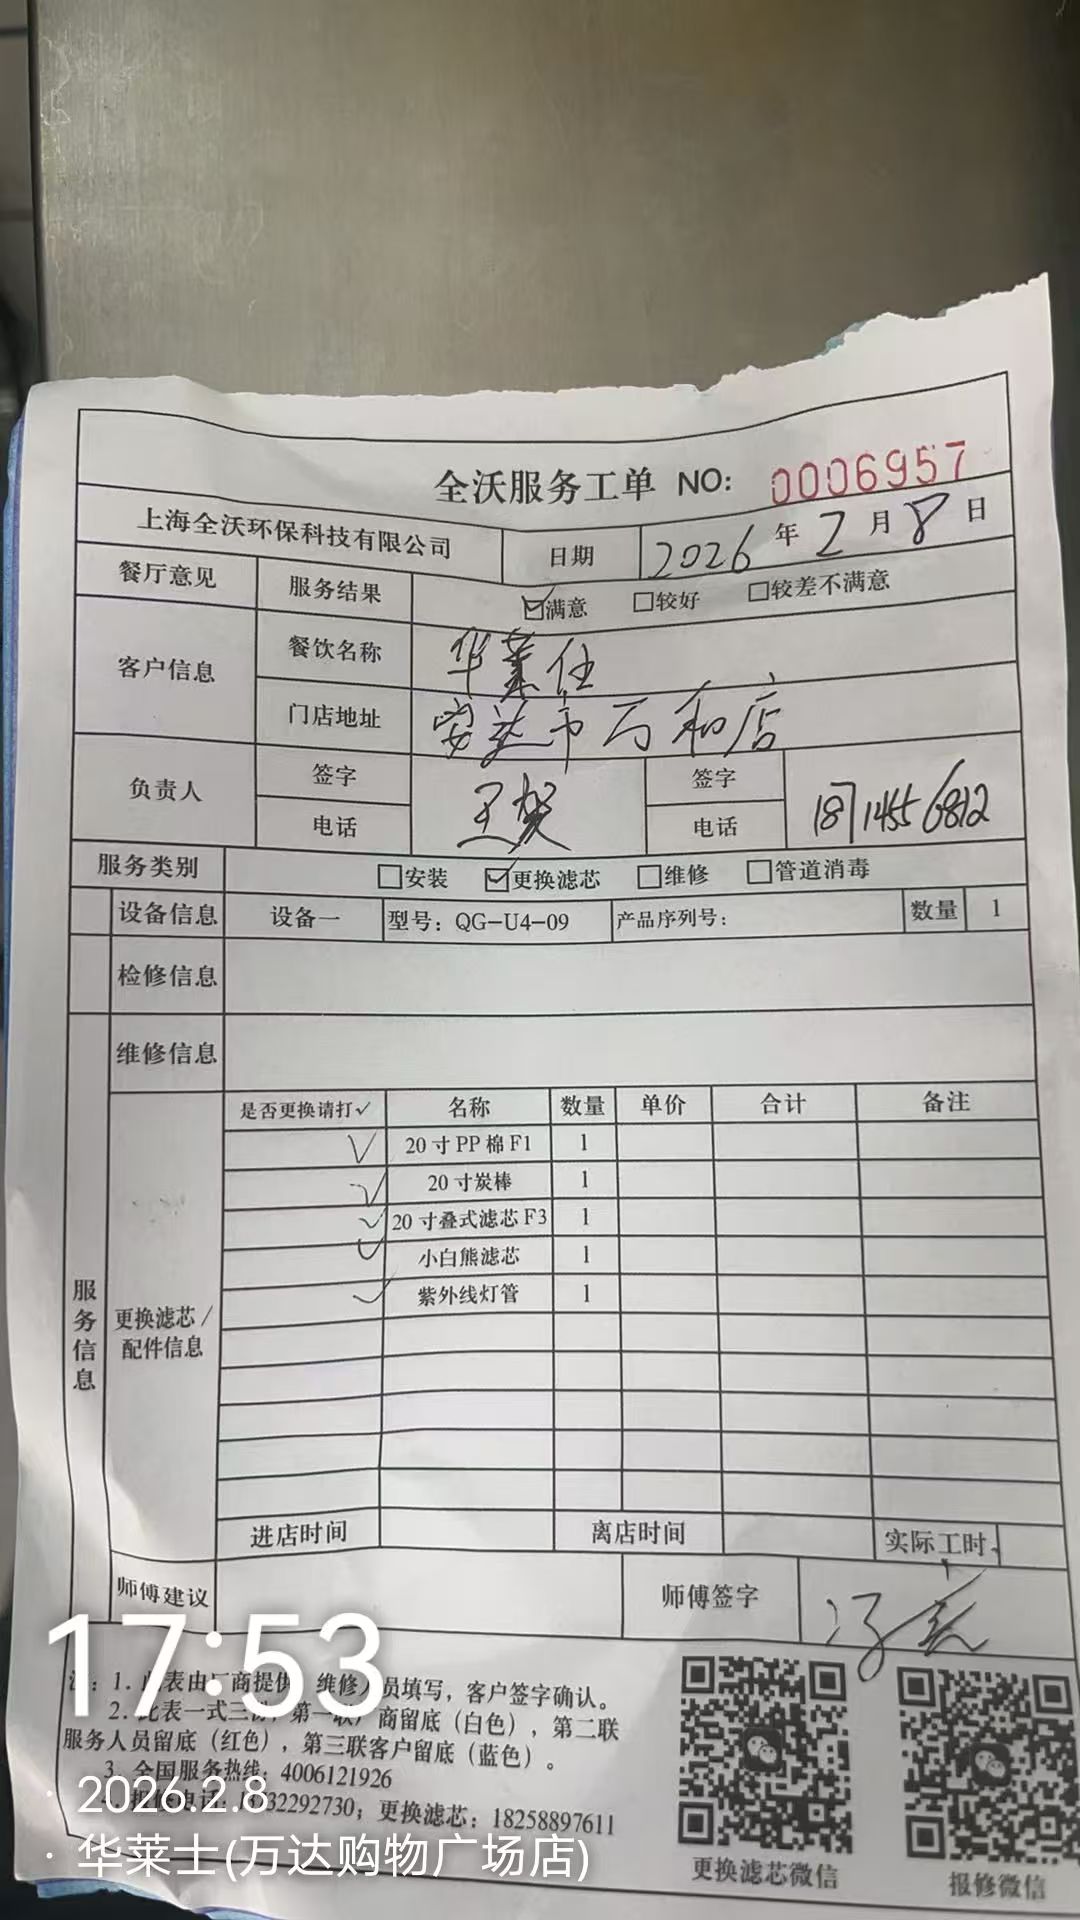 全沃服务工单 NO: 0006957
上海全沃环保科技有限公司 日期 2026年2月8日
餐厅意见 服务结果 ☑满意 □较好 □较差不满意
客户信息 餐饮名称 华莱仕
门店地址 安达市万和店
负责人 签字 王贺 签字
电话 电话 18714556812
服务类别 □安装 ☑更换滤芯 □维修 □管道消毒
设备信息 设备一 型号：QG-U4-09 产品序列号： 数量 1
检修信息
维修信息
服务信息
更换滤芯/
配件信息
是否更换请打✓ 名称 数量 单价 合计 备注
✓ 20寸PP棉F1 1
✓ 20寸炭棒 1
✓ 20寸叠式滤芯F3 1
✓ 小白熊滤芯 1
✓ 紫外线灯管 1
进店时间 离店时间 实际工时
师傅建议 师傅签字 冯
17:53
注：1. 此表由厂商提供，维修人员填写，客户签字确认。
2. 此表一式三份，第一联厂商留底（白色），第二联
服务人员留底（红色），第三联客户留底（蓝色）。
3. 全国服务热线：4006121926
4. 报修电话：32292730；更换滤芯：18258897611
· 2026.2.8
· 华莱士(万达购物广场店)
更换滤芯微信 报修微信